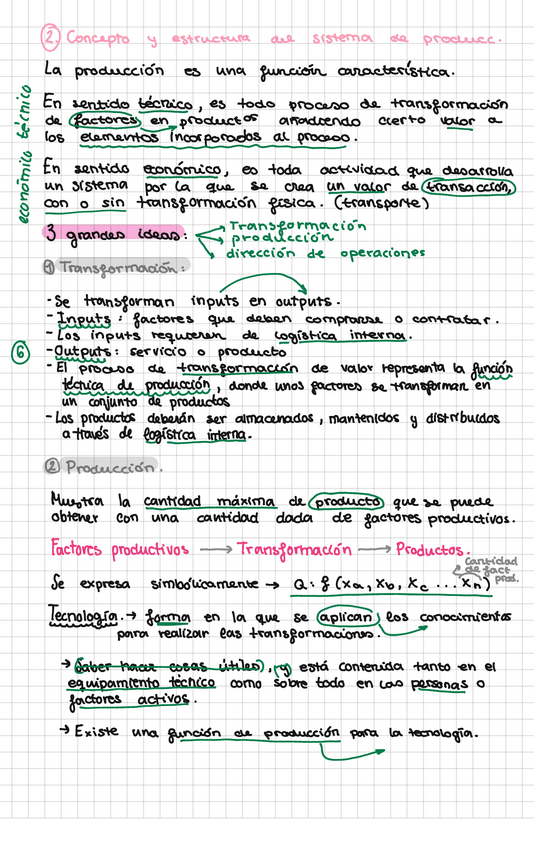 2. Concepto y estructura del sistema de producc.
La producción es una función característica.
económico técnico
En sentido técnico, es todo proceso de transformación
de factores en productos añadiendo cierto valor a
los elementos incorporados al proceso.
En sentido económico, es toda actividad que desarrolla
un sistema por la que se crea un valor de transacción,
con o sin transformación física. (transporte)
3 grandes ideas: Transformación
producción
dirección de operaciones
① Transformación:
- Se transforman inputs en outputs.
- Inputs: factores que deben comprarse o contratar.
- Los inputs requieren de logística interna.
⑥ - Outputs: servicio o producto
- El proceso de transformación de valor representa la función
técnica de producción, donde unos factores se transforman en
un conjunto de productos
- Los productos deberán ser almacenados, mantenidos y distribuidos
a través de logística interna.
② Producción.
Muestra la cantidad máxima de producto que se puede
obtener con una cantidad dada de factores productivos.
Factores productivos → Transformación → Productos.
Cantidad
de fact
prod.
Se expresa simbólicamente → Q: f (xa, xb, xc ... xn)
Tecnología. → forma en la que se aplican los conocimientos
para realizar las transformaciones.
→ (saber hacer cosas útiles), (y) está contenida tanto en el
equipamiento técnico como sobre todo en las personas o
factores activos.
→ Existe una función de producción para la tecnología.